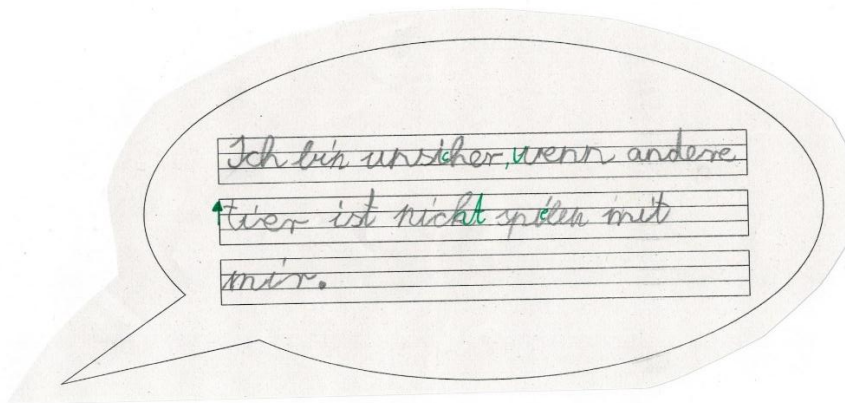 Ich bin unsicher, wenn andere
tier ist nicht spielen mit
mir.